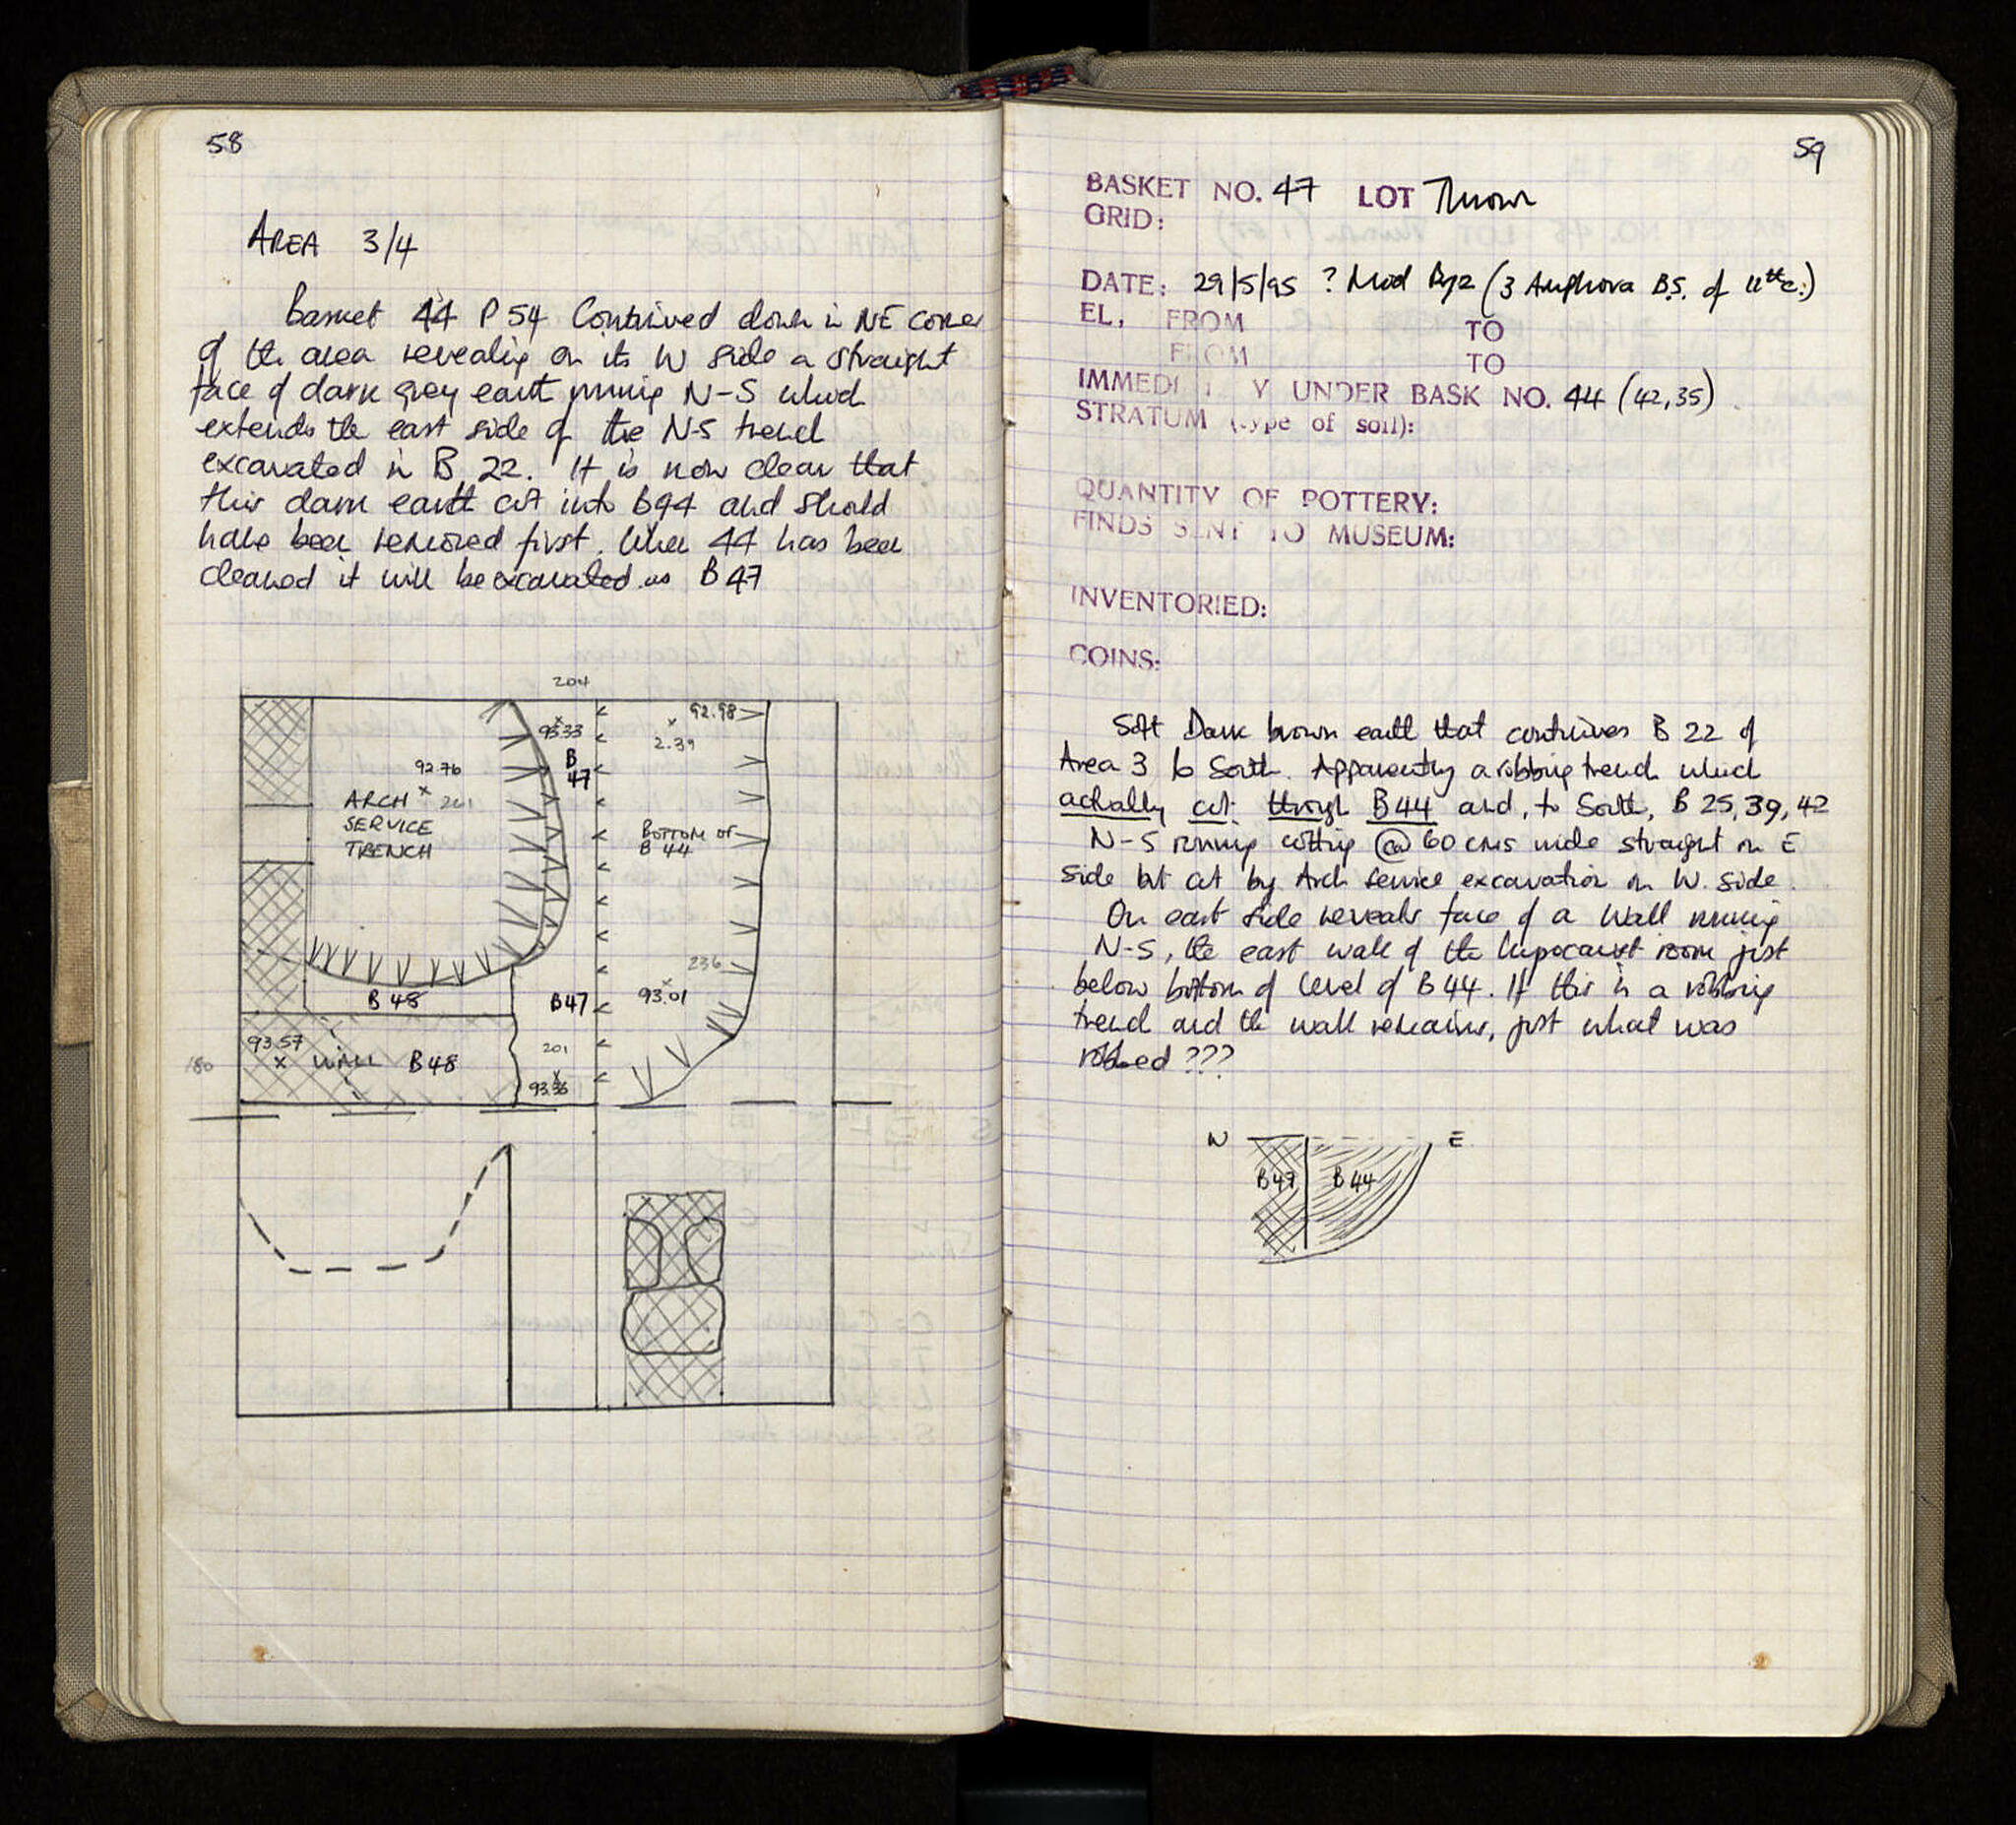 58
AREA 3/4
Basket 44 P 54 Continued down in NE corner
of the area revealing on its W side a straight
face of dark grey earth running N-S which
extends the east side of the N-S trench
excavated in B 22. It is now clear that
this dark earth cut into B44 and should
have been removed first. When 44 has been
cleaned it will be excavated as B 47
204
93.33
92.98
2.39
B
47
92.76
ARCH 201
SERVICE
TRENCH
BOTTOM OF
B 44
236
B 48
B47
93.01
93.57
WALL B48
201
93.36
180
59
BASKET NO. 47 LOT Thrown
GRID:
DATE: 29/5/95 ? Mod Byz (3 Amphora B.S. of 11th c.)
EL, FROM TO
FROM TO
IMMEDI Y UNDER BASK NO. 44 (42,35)
STRATUM (type of soil):
QUANTITY OF POTTERY:
FINDS SENT TO MUSEUM:
INVENTORIED:
COINS:
Soft Dark brown earth that continues B 22 of
Area 3 to South. Apparently a robbing trench which
actually cut through B44 and, to South, B 25, 39, 42
N-S running cutting @ 60 cms wide straight on E
side but cut by Arch Service excavation on W. side.
On east side reveals face of a Wall running
N-S, the east wall of the hypocaust room just
below bottom of level of B 44. If this is a robbing
trench and the wall remains, just what was
robbed ???
W E
B47 B44